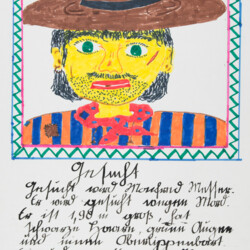 Gesucht
Gesucht wird Mechand Messer.
Er wird gesucht wegen Mord.
Er ist 1,90 m groß, hat
schwarze Haare, grüne Augen
und einen Oberlippenbart